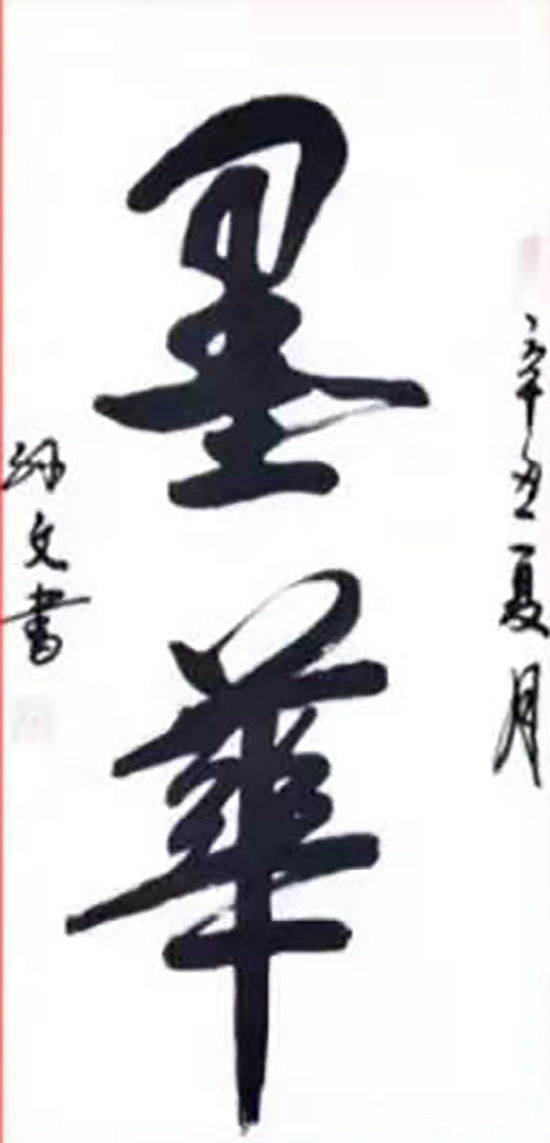 辛丑夏月
墨華
孙文書